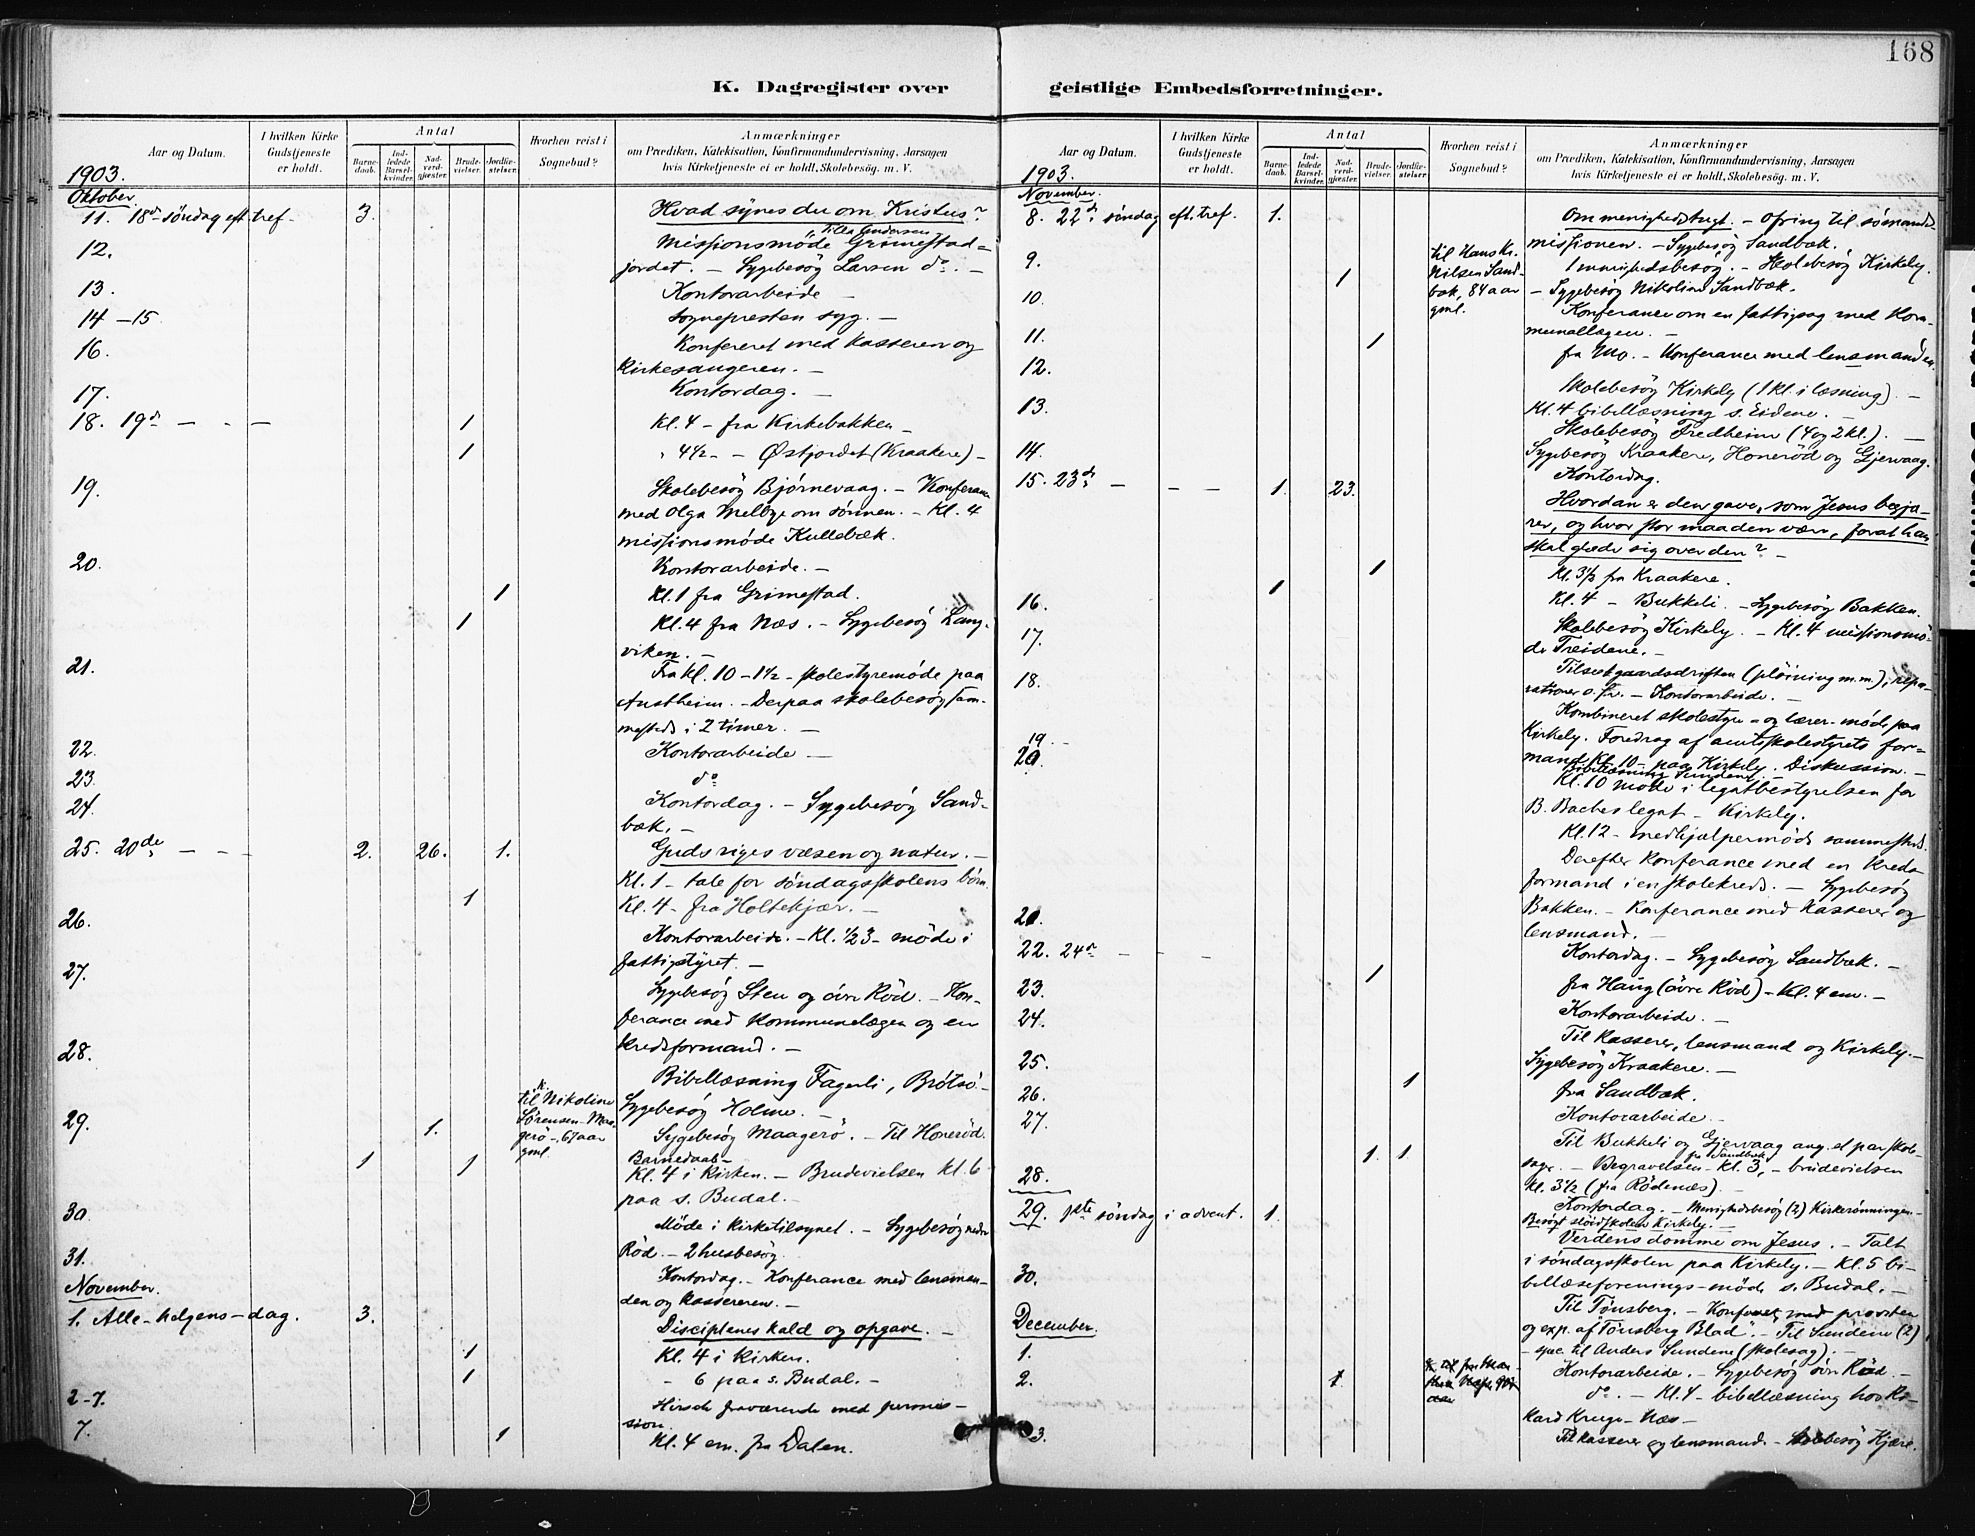 168
K. Dagregister over
geistlige Embedsforretninger.
Aar og Datum.
I hvilken Kirke Gudstjeneste er holdt.
Antal
Barnedaab.
Indledede Barselkvinder.
Nadverdgjæster.
Brudevielser.
Jordfæstelser.
Hvorhen reist i Sognebud?
Anmærkninger
om Prædiken, Katekisation, Konfirmandundervisning, Aarsagen
hvis Kirketjeneste ei er holdt, Skolebesøg. m. V.
1903.
Oktober.
11. 18de søndag eft. tref. 3. Hvad synes du om Kristus?
12. Missionsmøde Grimestad-
jordet. – Sygebesøg Larsen do. –
13. Kontorarbeide –
14–15 Sognepresten syg. –
16. Konfereret med kasseren og
kirkesangeren. –
17. Kontordag. –
18. 19de – – – 1 Kl. 4 – fra Kirkebakken –
1 " 4½ – – Østjordet (Kraakere) –
19. Skolebesøg Bjørnevaag. – Konferance
med Olga Melbye om sønnen. – Kl. 4
missionsmøde Kullebæk.
20. Kontorarbeide. –
1 Kl. 1 fra Grimestad.
1 Kl. 4 fra Næs. – Sygebesøg Lang-
viken. –
21. Fra kl. 10 – 1½ – skolestyremøde paa
Austheim. – Derpaa skolebesøg sam-
mesteds i 2 timer. –
22. Kontorarbeide –
23. do
24. Kontordag. – Sygebesøg Sand-
bæk. –
25. 20de – – – 2. 26. 1. Guds riges væsen og natur. –
Kl. 1 – tale for søndagsskolens børn.
1 Kl. 4 – fra Holtekjær. –
26. Kontorarbeide. – Kl. ½3 – møde i
fattigstyret. –
27. Sygebesøg Sten og øvre Rød. – Kon-
ferance med kommunelægen og en
kredsformand. –
28. Bibellæsning Fagerli, Brøtsø –
Sygebesøg Holme. –
29. 1. til Nikoline
Sørensen Maa-
gerø, 67 aar
gml.
Sygebesøg Maagerø. – Til Honerød.
Barnedaab –
1 1 Kl. 4 i kirken. – Brudevielsen kl. 6
paa s. Budal. –
30. Møde i kirketilsynet. – Sygebesøg nedre
Rød. – 2 husbesøg.
31. Kontordag. – Konferance med lensman-
den og kassereren. –
November.
1. Alle-helgens-dag. 3. Disciplenes kald og opgave. –
1 Kl. 4 i kirken.
1 – 6 paa s. Budal. –
2–7. Hirsch fraværende med permis-
sion
7. 1 Kl. 4 em. fra Dalen.
Aar og Datum.
I hvilken Kirke Gudstjeneste er holdt.
Antal
Barnedaab.
Indledede Barselkvinder.
Nadverdgjæster.
Brudevielser.
Jordfæstelser.
Hvorhen reist i Sognebud?
Anmærkninger
om Prædiken, Katekisation, Konfirmandundervisning, Aarsagen
hvis Kirketjeneste ei er holdt, Skolebesøg. m. V.
1903.
November.
8. 22de søndag eft. tref. 1. Om menighedstugt. – Ofring til sømands-
missionen. – Sygebesøg Sandbæk.
9. 1 til Hans Kr.
Nilsen Sand-
bæk, 84 aar
gml.
1 menighedsbesøg. – Skolebesøg Kirkely.
– Sygebesøg Nikoline Sandbæk.
10. Konferance om en fattigsag med kom-
munallægen. –
11. 1 fra Mo. – Konferance med lensmanden.
12. Skolebesøg Kirkely (1 kl. i læsning). –
13. Kl. 4 bibellæsning s. Eidene. –
Skolebesøg Fredheim (4 og 2 kl.). –
14. Sygebesøg Kraakere, Honerød og Gjervaag.
Kontordag.
15. 23de – – – 1. 23. Hvordan er den gave, som Jesus begjæ-
rer, og hvor stor maa den være, forat han
skal glæde sig over den? –
1 Kl. 3½ fra Kraakere.
16. 1 Kl. 4 – Bukkeli. – Sygebesøg Bakken.
17. Skolebesøg Kirkely. – Kl. 4 missionsmø-
de Treidene. –
18. Tilseet gaardsdriften (pløining m.m.), repa-
rationer o.s.v. – Kontorarbeide. –
Kombineret skolestyre- og lærer-møde paa
19. – Kirkely. Foredrag af amtsskolestyrets for-
20. mand Kl. 10 – paa Kirkely. Diskussion. –
Bibellæsning Sundene –
Kl. 10 møde i legatbestyrelsen for
B. Baches legat – Kirkely.
Kl. 12 – medhjælpermøde sammesteds.
Derefter konferance med en kreds-
formand i en skolekreds. – Sygebesøg
21. Bakken. – Konferance med kasserer og
lensmand. –
22. 24de – – – Kontordag. – Sygebesøg Sandbæk. –
1 fra Haug (øvre Rød) – Kl. 4 em. –
23. Kontorarbeide. –
24. Til kasserer, lensmand og Kirkely. –
25. Sygebesøg Kraakere. –
1 fra Sandbæk.
26. Kontorarbeide. –
27. Til Bukkeli og Gjervaag ang. et par skole-
fra Sandbæk
1 1 sager. – Begravelsen – Kl. 3, – brudevielsen
28. Kl. 3½ (fra Rødenæs). –
Kontordag. – Menighedsbesøg (2) Kirkerønningen. –
Besøgt sløidskolen Kirkely. –
29. 1ste søndag i advent. 1. Verdens domme om Jesus. – Talt
i søndagsskolen paa Kirkely. – Kl. 5 bi-
bellæseforenings-møde s. Budal. –
30. Til Tønsberg. – med provsten
og exp. af "Tønsberg Blad". – Til Sundene (2)
December.
– spec. til Anders Sundene (skolesag). –
1. Kontorarbeide. – Sygebesøg øvre Rød. –
2. 1 do. – Kl. 4 – bibellæsning hos Ri-
kard Kruge – Næs –
3. Til kasserer og lensmand. – Skolebesøg Kjære.